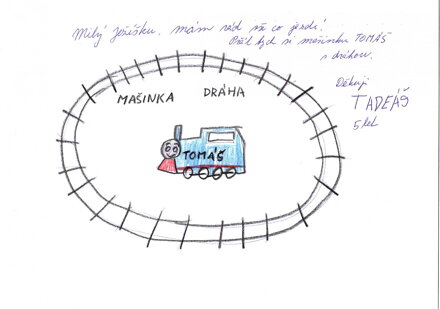 Milý Ježíšku, mám rád vše co jezdí!
Přál bych si mašinku TOMÁŠ
s dráhou.
Děkuji
TADEÁŠ
5 let
MAŠINKA DRÁHA
TOMÁŠ